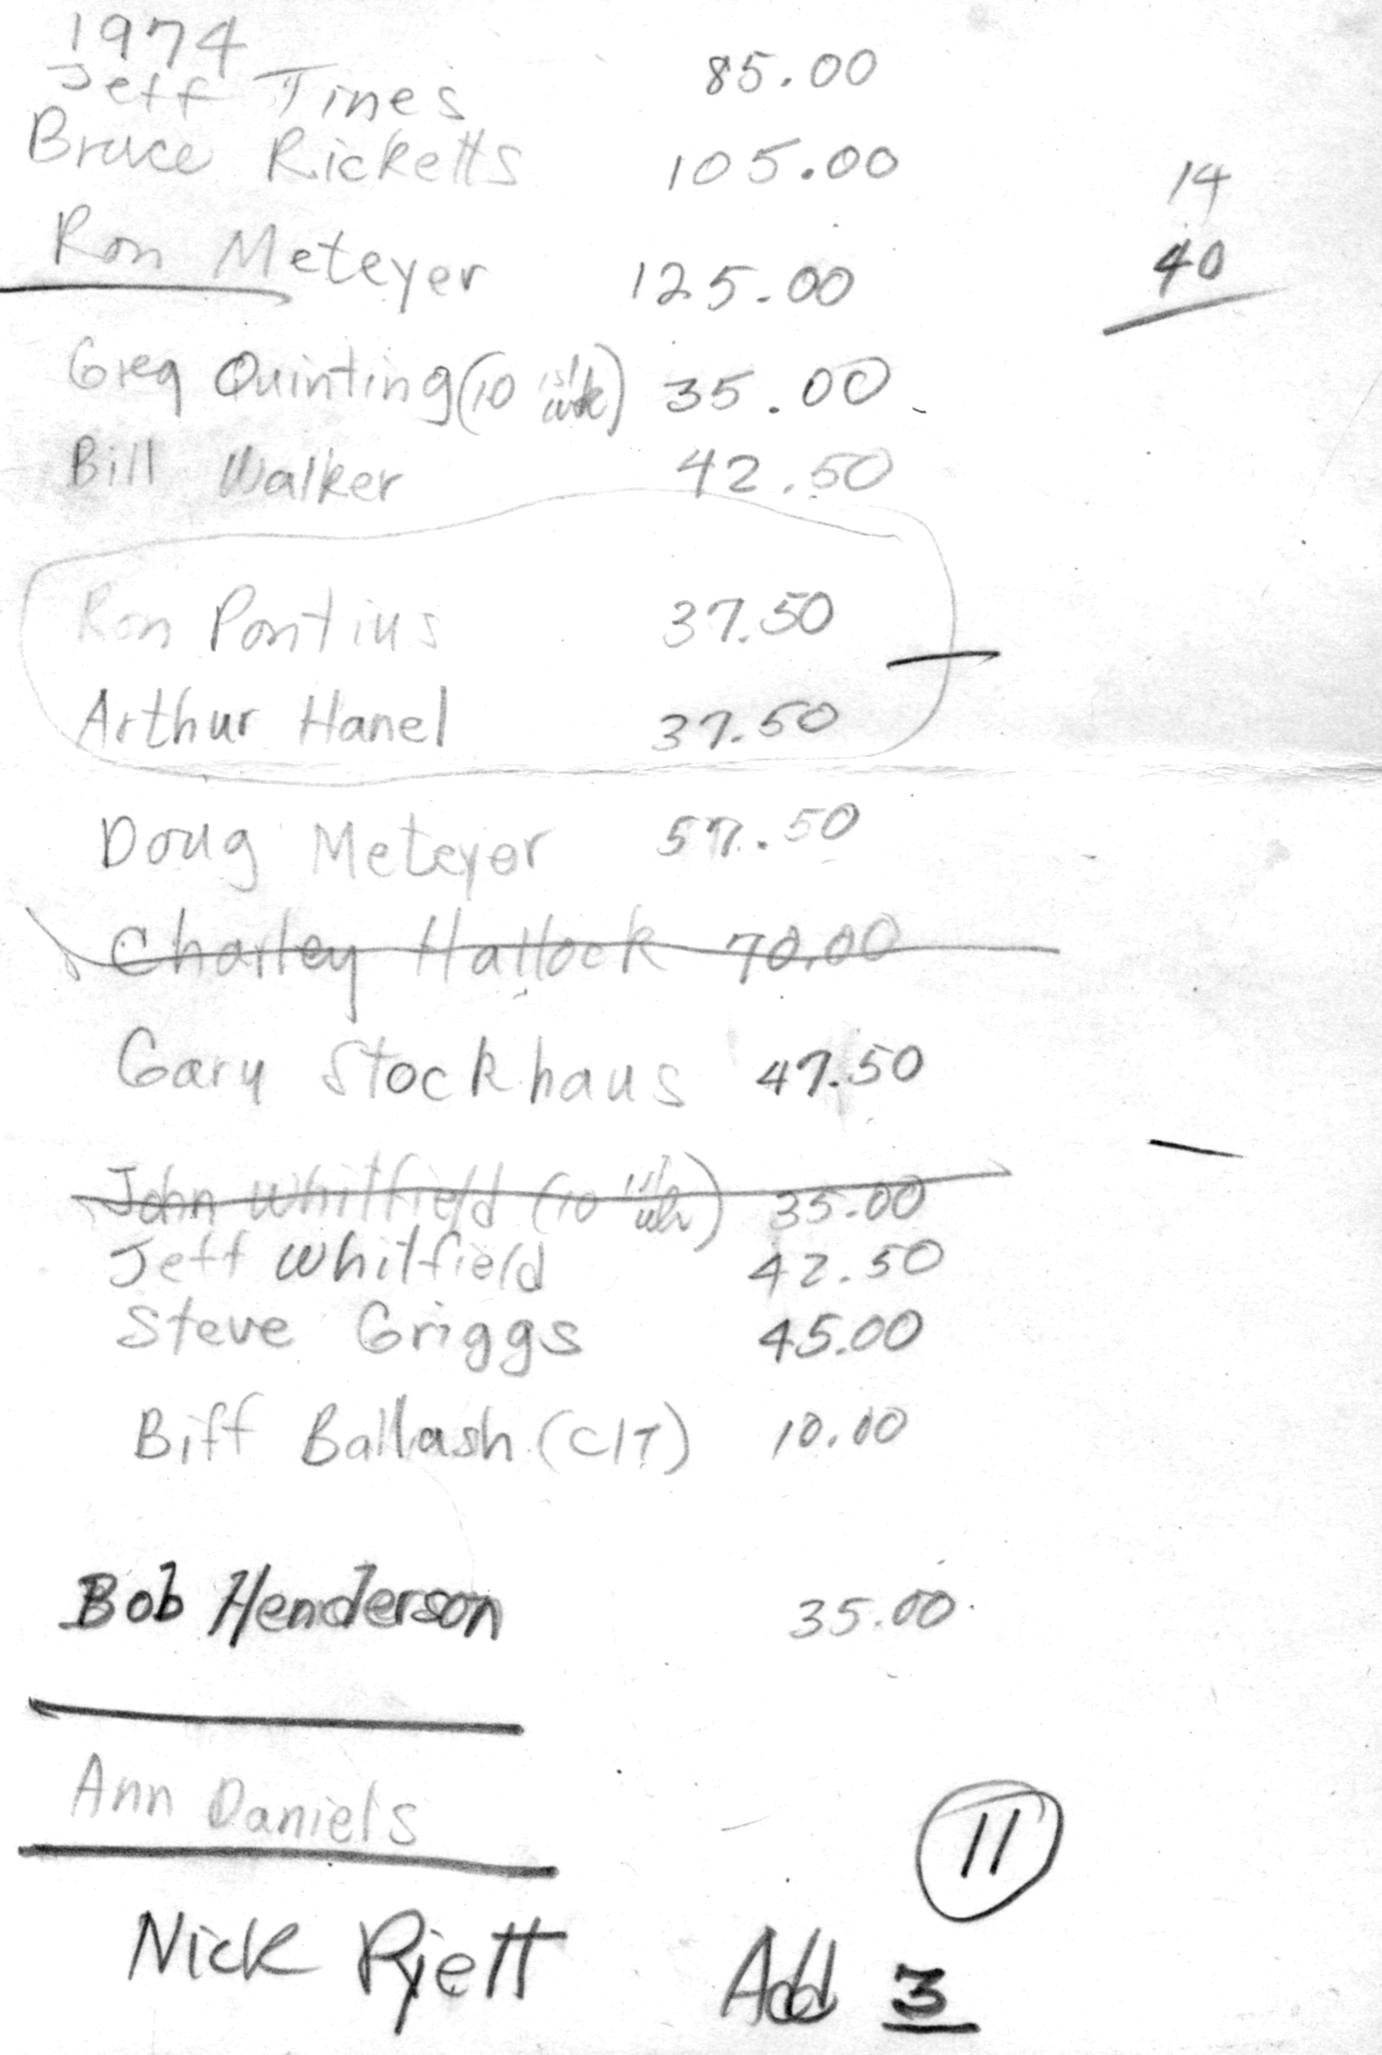 1974
Jeff Tines 85.00
Bruce Ricketts 105.00
14
Ron Meteyer 125.00
40
Greg Quinting (10 1st wk) 35.00
Bill Walker 42.50
Ron Pontius 37.50
Arthur Hanel 37.50
Doug Meteyer 57.50
Charley Hallock 70.00
Gary Stockhaus 47.50
John Whitfield (10 1st wk) 35.00
Jeff Whitfield 42.50
Steve Griggs 45.00
Biff Ballash (CIT) 10.00
Bob Henderson 35.00
Ann Daniels
11
Nick Pjett Add 3